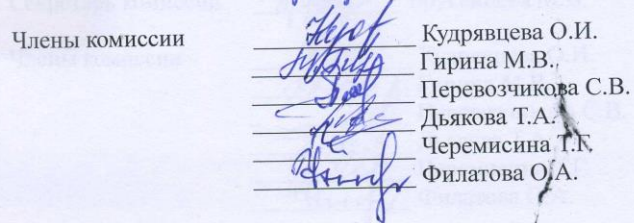 Члены комиссии
Кудрявцева О.И.
Гирина М.В.
Перевозчикова С.В.
Дьякова Т.А.
Черемисина Т.Г.
Филатова О.А.